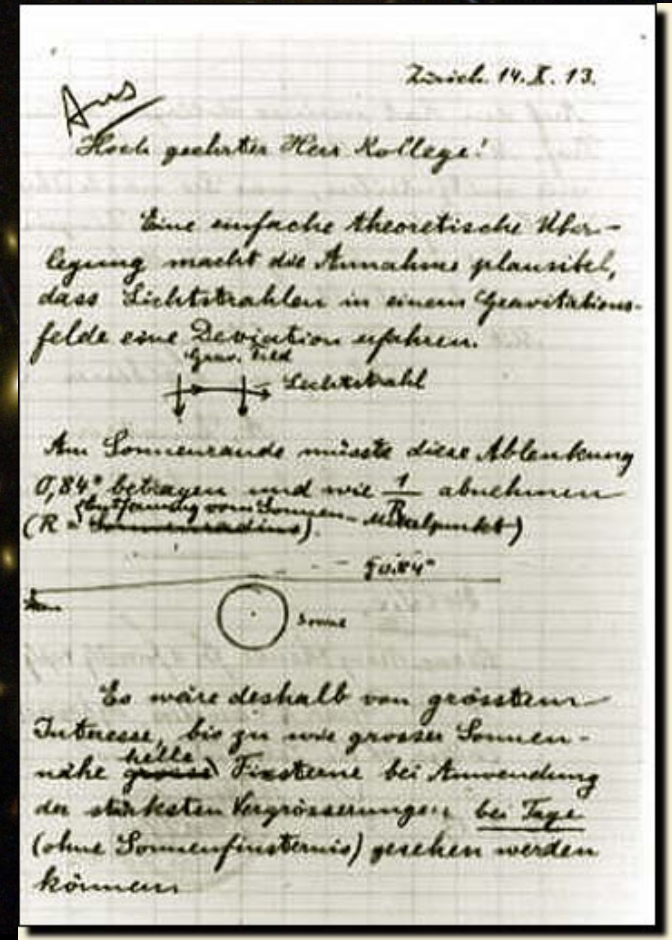 Zürich. 14. X. 13.
Aus
Hoch geehrter Herr Kollege!
Eine einfache theoretische Über-
legung macht die Annahme plausibel,
dass Lichtstrahlen in einem Gravitations-
felde eine Deviation erfahren.
Grav. Feld
Lichtstrahl
Am Sonnenrande müsste diese Ablenkung
0,84" betragen und wie 1/R abnehmen
Entfernung vom Sonnen-Mittelpunkt)
(R = Sonnenradius)
0.84"
Sonne
Es wäre deshalb von grösstem
Interesse, bis zu wie grosser Sonnen-
helle
nähe grosse Fixsterne bei Anwendung
der stärksten Vergrösserungen bei Tage
(ohne Sonnenfinsternis) gesehen werden
können.